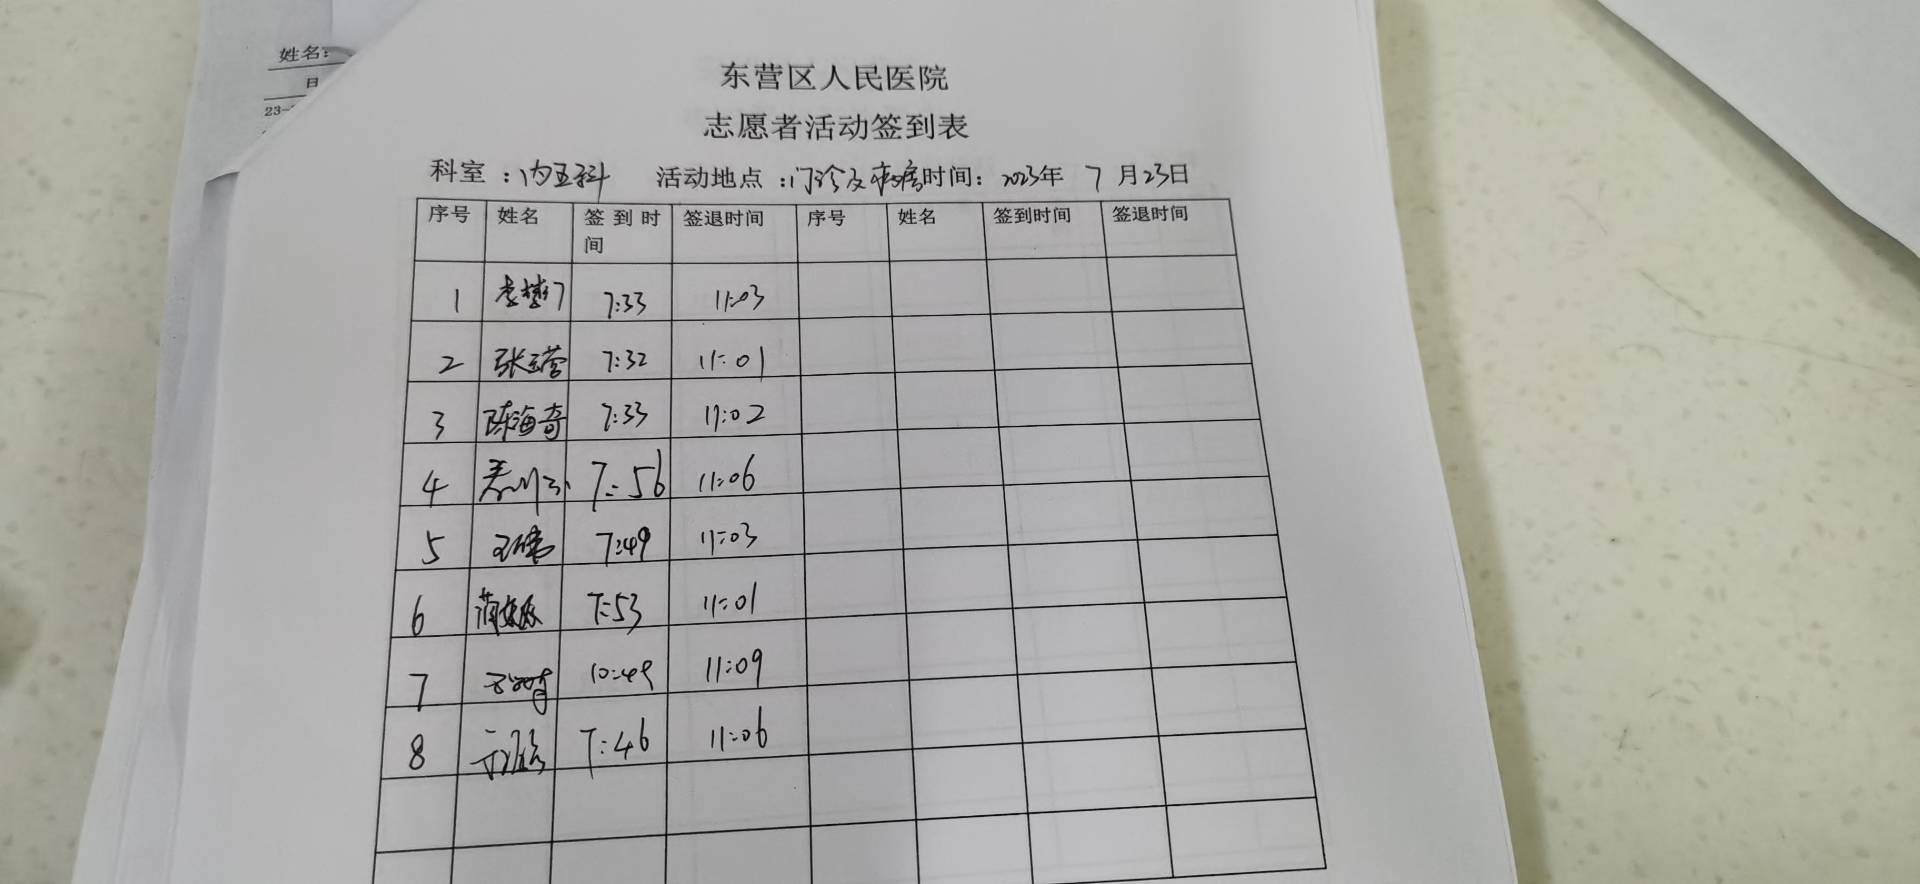 姓名:
日
23-
东营区人民医院
志愿者活动签到表
科室：内五科 活动地点：门诊及病房 时间：2023年 7 月 23日
序号 姓名 签到时间 签退时间 序号 姓名 签到时间 签退时间
1 7:33 11:03
2 张玉莹 7:32 11:01
3 陈海奇 7:33 11:02
4 7:56 11:06
5 7:49 11:03
6 7:53 11:01
7 10:49 11:09
8 7:46 11:06